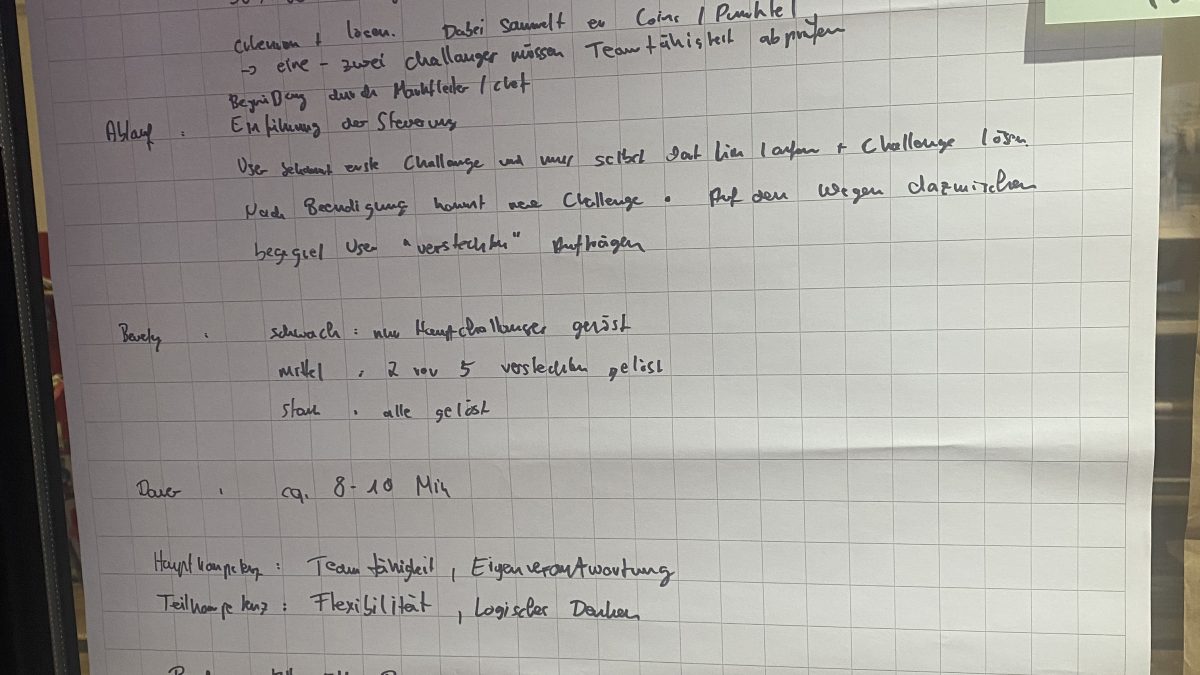 lösen. Dabei sammelt er Coins / Punkte /
→ eine - zwei Challanger müssen Teamfähigkeit abprüfen
Begrüßung durch Marktleiter / chef
Ablauf : Einführung der Steuerung
User bekommt erste Challenge und muss selbst dort hin laufen + Challenge lösen
Nach Beendigung kommt neue Challenge . Auf den Wegen dazwischen
begegnet User "versteckten" Aufträgen
schwach : nur Hauptchallanger gelöst
mittel : 2 von 5 versteckten gelöst
stark : alle gelöst
Dauer : ca. 8-10 Min
Hauptkompetenz : Teamfähigkeit , Eigenverantwortung
Teilkompetenz : Flexibilität , Logisches Denken